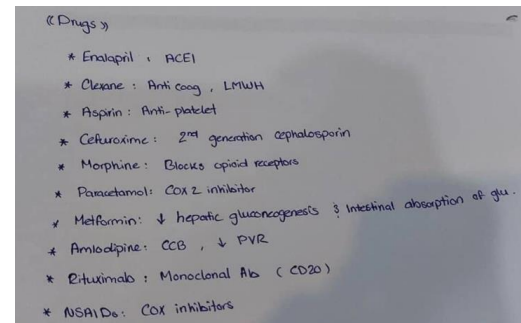 《 Drugs 》
* Enalapril : ACEI
* Clexane : Anti coag , LMWH
* Aspirin : Anti-platelet
* Cefuroxime : 2nd generation cephalosporin
* Morphine : Blocks opioid receptors
* Paracetamol: COX 2 inhibitor
* Metformin: ↓ hepatic gluconeogenesis & Intestinal absorption of glu.
* Amlodipine: CCB , ↓ PVR
* Rituximab : Monoclonal Ab ( CD20 )
* NSAIDs: COX inhibitors